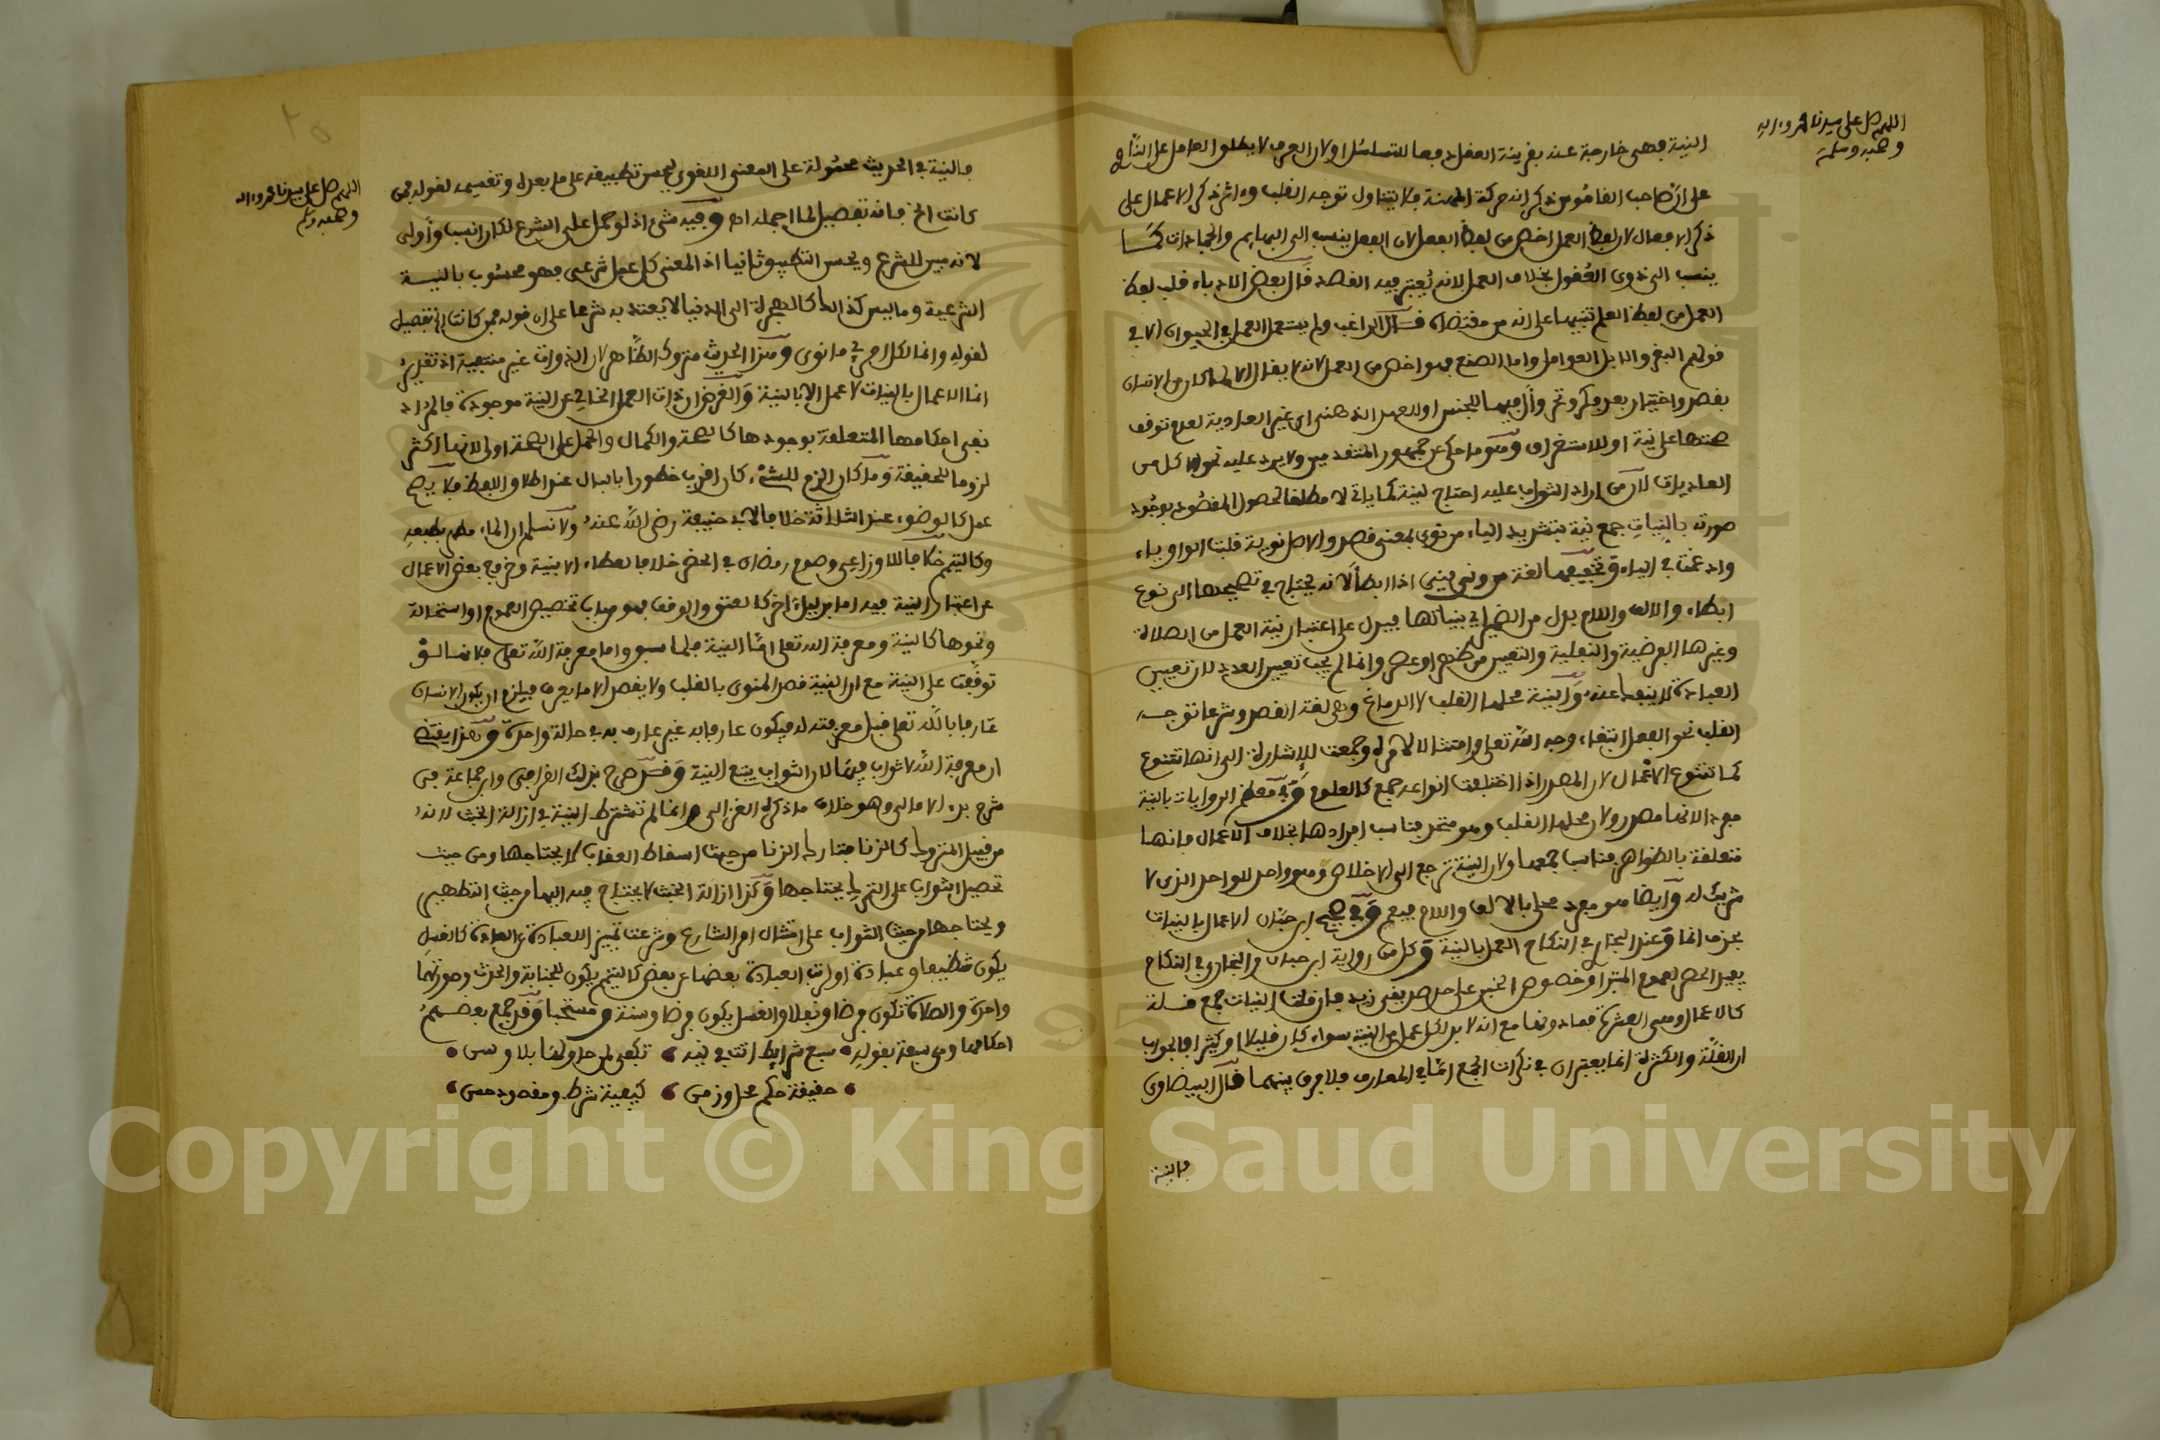 اللهم صل على سيدنا محمد وءاله
وصحبه وسلم
النية فهي خارجة عنه بقرينة العقل دفعا للتسلسل او لان العرف لا يطلق العامل على الناوي
على ان صاحب القاموس ذكر انه حركة المهنة فلا يتناول توجه القلب وءاثر ذكر الاعمال على
ذكر الافعال لان لفظ العمل اخص من لفظ الفعل لان الفعل ينسب الى البهايم والجمادات كما
ينسب الى ذوي العقول بخلاف العمل لانه يعتبر فيه القصد قال بعض الادباء قلب لفظ
العمل من لفظ العلم تنبيها على انه من مقتضاه قال الراغب ولم يستعمل العمل في الحيوان الا في
قولهم البقر والابل العوامل واما الصنع فهو اخص من العمل لانه لا يقال الا لما كان من الانسان
بقصد واختيار بعد فكر وتحر وأل فيها للجنس او للعهد الذهني اي غير العادية لعدم توقف
صحتها على نية او للاستغراق وهو ما حكي عن جمهور المتقدمين ولا يرد عليه نحو الاكل من
العاديات لان من اراد الثواب عليه احتاج لنية كما ياتي لا مطلقا لحصول المقصود بوجود
صورته بالنيات جمع نية بتشديد الياء من نوى بمعنى قصد والاصل نوية قلبت الواو ياء
وادغمت في الياء وتخفيفها لغة من ونى يني اذا ابطأ لانه يحتاج في تصحيحها الى نوع
ابطاء والالف واللام بدل من الضمير اي بنياتها فيدل على اعتبار نية العمل من الصلاة
وغيرها الفرضية والنفلية والتعيين من ظهر او عصر وانما لم يجب تعيين العدد لان تعيين
العبادة لا ينفك عنه والنية محلها القلب لا الدماغ وهي لغة القصد وشرعا توجه
القلب نحو الفعل ابتغاء وجه الله تعلى وامتثالا لامره وجمعت للاشارة الى انها تتنوع
كما تتنوع الاعمال لان المصدر اذا اختلفت انواعه جمع كالعلوم وفي معظم الروايات بالنية
مفردا لانها مصدر ولان محلها القلب وهو متحد فناسب افرادها بخلاف الاعمال فانها
متعلقة بالظواهر فناسب جمعها ولان النية ترجع الى الاخلاص وهو واحد للواحد الذي لا
شريك له وايضا هو مفرد محلى بالالف واللام فيعم وفي صحيح ابن حبان الاعمال بالنيات
بحذف انما وعند البخاري في النكاح العمل بالنية وكل من رواية ابن حبان والبخاري في النكاح
يفيد الحصر لعموم المبتدا وخصوص الخبر على حد صديقي زيد فان قلت النيات جمع قلة
كالاعمال وهي العشرة فما دونها مع انه لا بد لكل عمل من النية سواء كان قليلا او كثيرا فالجواب
ان القلة والكثرة انما يعتبران في نكرات الجمع اما في المعارف فلا فرق بينهما قال البيضاوي
فالنية
اللهم صل على سيدنا محمد وءاله
وصحبه وسلم
فالنية في الحديث محمولة على المعنى اللغوي ليحسن تطبيقه على ما بعده وتقسيمه لقوله فمن
كانت الخ فانه تفصيل لما اجمله اه وفيه شيء اذ لو حمل على الشرع لكان انسب وأولى
لانه مبين للشرع ويحسن التطبيق ثانيا اذ المعنى كل عمل شرعي فهو محسوب بالنية
الشرعية وما ليس كذالك كالهجرة الى الدنيا لا يعتد به شرعا على ان قوله فمن كانت الخ تفصيل
لقوله وانما لكل امرئ ما نوى وهذا الحديث متروك الظاهر لان الذوات غير منتفية اذ تقدير
انما الاعمال بالنيات لا عمل الا بالنية والغرض ان ذات العمل الخالي عن النية موجودة فالمراد
نفي احكامها المتعلقة بوجودها كالصحة والكمال والحمل على الصحة اولى لانها اكثر
لزوما للحقيقة وما كان الزم للشيء كان اقرب خطورا بالبال عند اطلاق اللفظ فلا يصح
عمل كالوضوء عند الثلاثة خلافا لابي حنيفة رضي الله عنه ولا نسلم ان الماء مطهر بطبعه
وكالتيمم خلافا للاوزاعي وصوم رمضان في الحضر خلافا لعطاء الا بنية وخروج بعض الاعمال
عن اعتبار النية فيه اما بدليل اخر كالعتق والوقف فهو من باب تخصيص العموم او استحالة
ونحوها كالنية ومعرفة الله تعلى اما النية فلما سبق واما معرفة الله تعلى فلانها لو
توقفت على النية مع ان النية قصد المنوي بالقلب ولا يقصد الا ما يعرف فيلزم ان يكون الانسان
عارفا بالله تعلى قبل معرفته له فيكون عارفا به غير عارف به في حالة واحدة وهذا يقتضي
ان معرفة الله لا ثواب فيها لان الثواب يتبع النية وقد صرح بذلك القرافي وابن جماعة في
شرح بدء الامالي وهو خلاف ما ذكره الغزالي وانما لم تشترط النية في ازالة الخبث لانه
من قبيل المتروك كالزنا فتارك الزنا من حيث اسقاط العقاب لا يحتاجها ومن حيث
تحصيل الثواب على الترك يحتاجها وكذا ازالة الخبث لا يحتاج فيه اليها من حيث التطهير
ويحتاجها من حيث الثواب على امتثال امر الشارع وشرعت تمييزا للعبادة عن العادة كالغسل
يكون تنظيفا وعبادة او لرتب العبادة بعضها عن بعض كالتيمم يكون للجنابة والحدث وصورتهما
واحدة والصلاة تكون فرضا ونفلا والغسل يكون فرضا وسنة ومستحبا وقد جمع بعضهم
احكامها وهي سبعة بقوله سبع شرايط اتت في نيه تكفي لمن حاولها بلا وسن
حقيقة حكم محل وزمن كيفية شرط ومقصود حسن